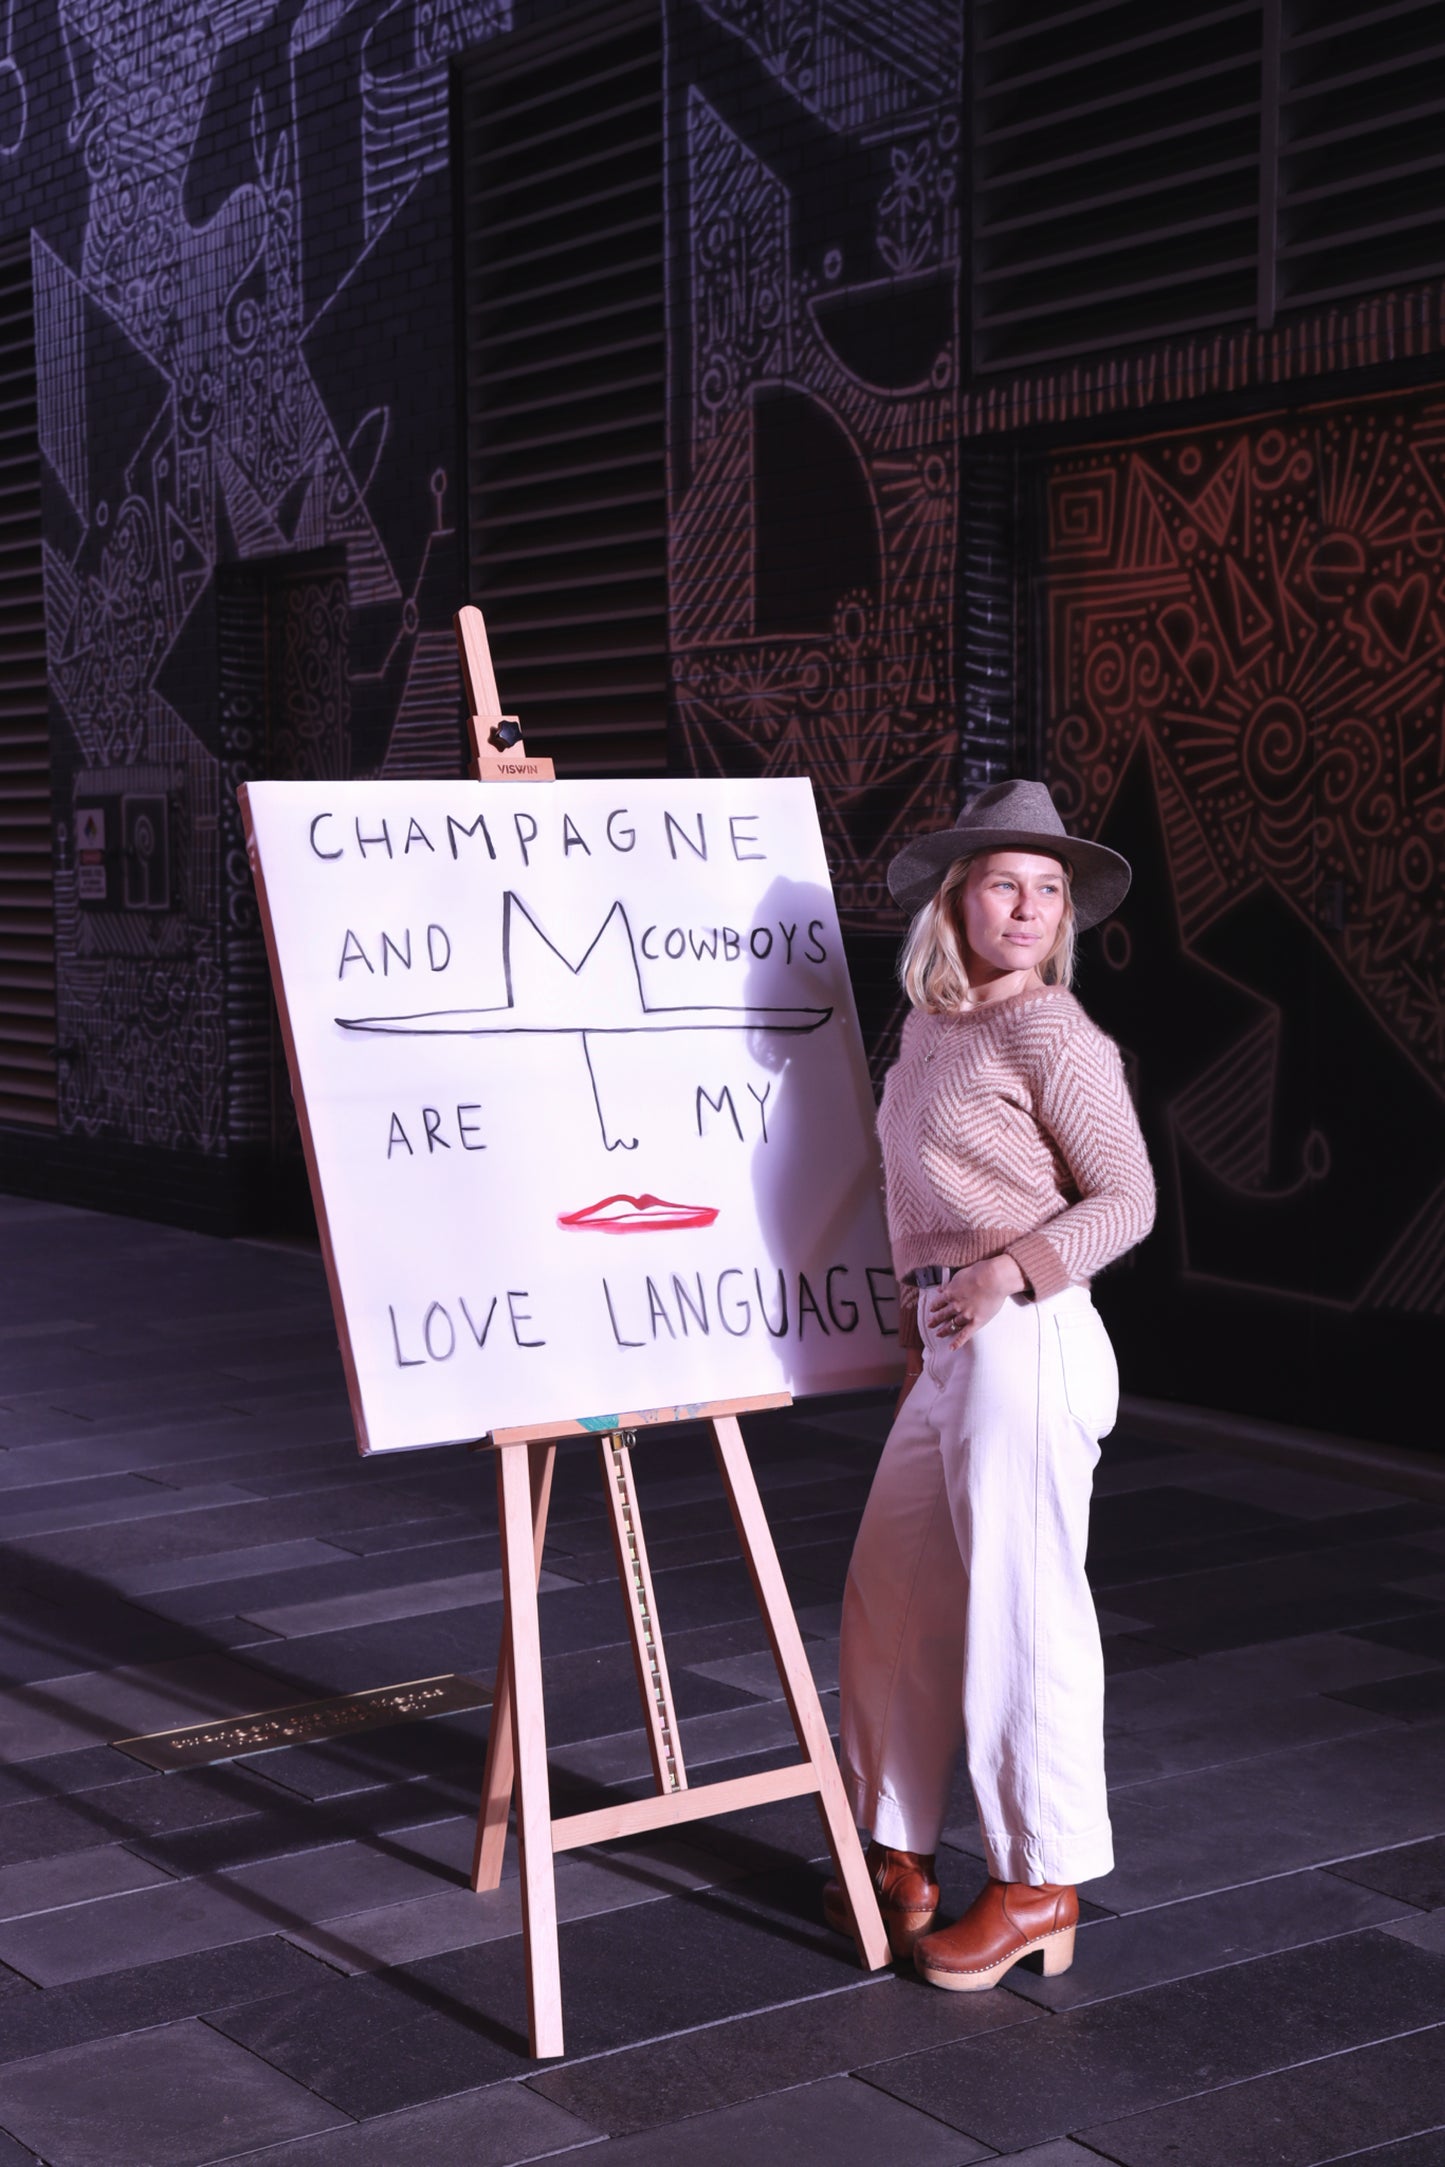 VISWIN
CHAMPAGNE
AND COWBOYS
ARE MY
LOVE LANGUAGE
BLAKE